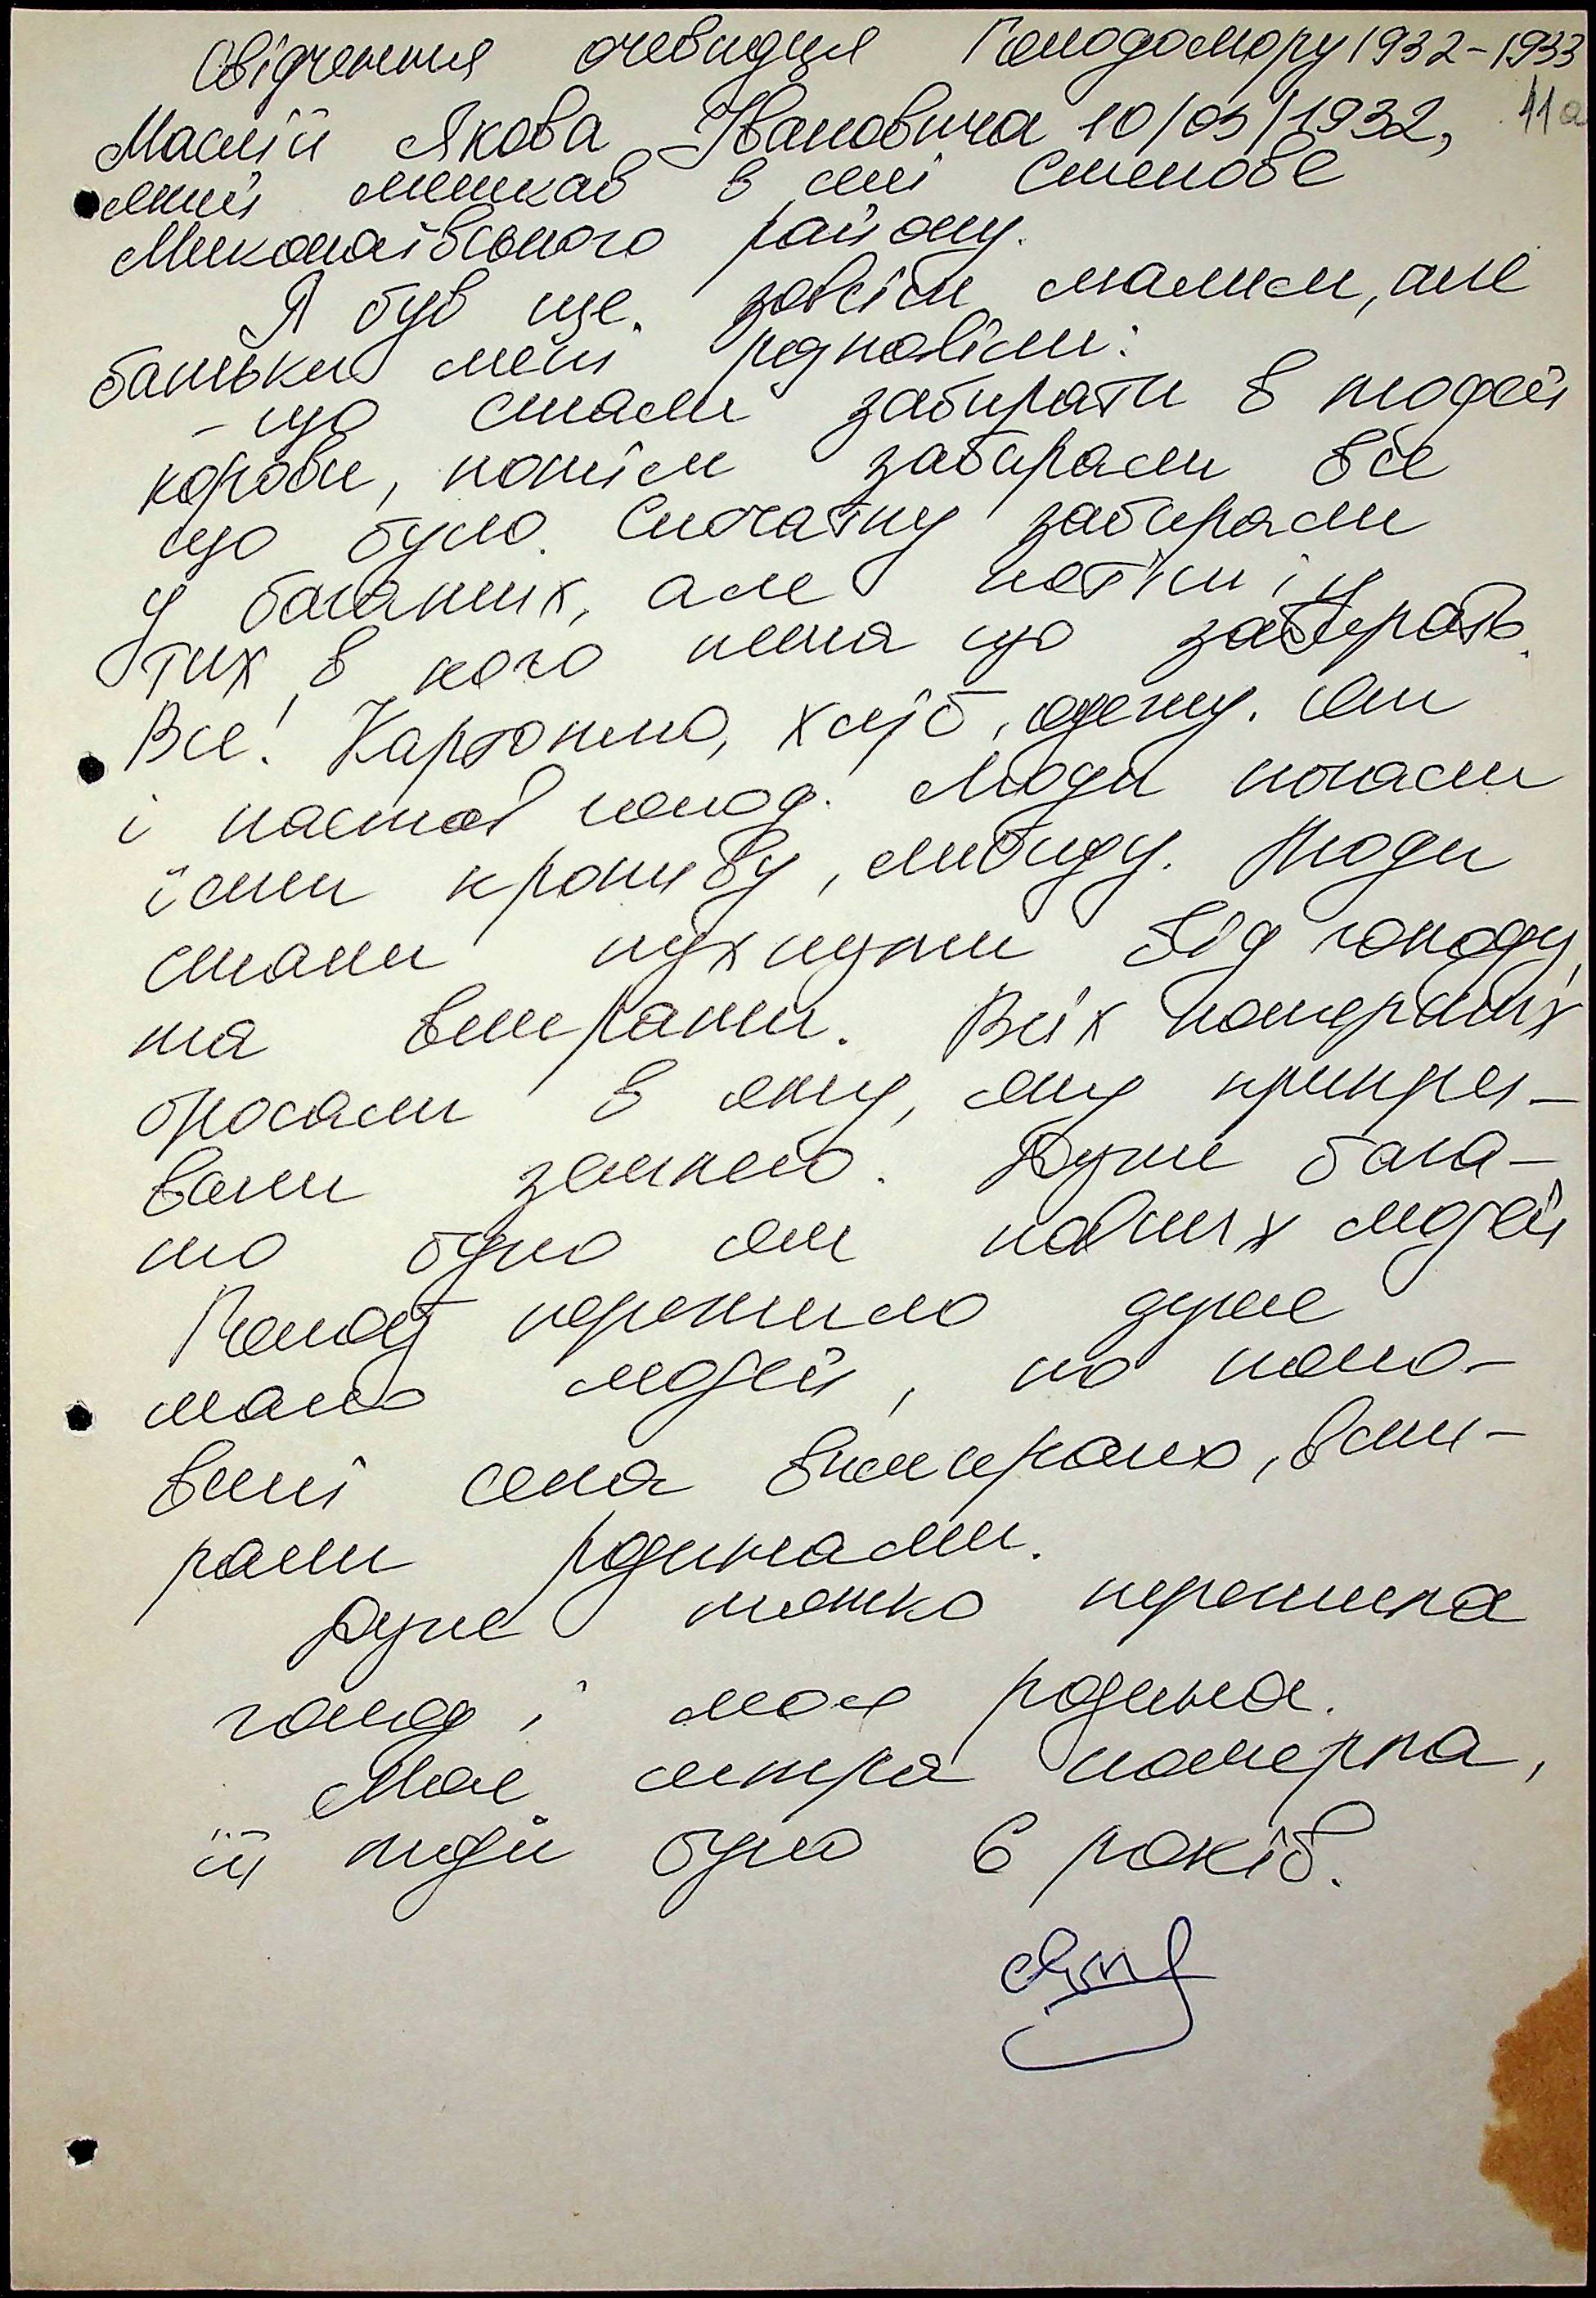 Свідчення очевидця Голодомору 1932-1933
11а
Маслій Якова Івановича 10/05/1932,
який мешкав в селі Степове
Миколаївського району.
Я був ще зовсім малим, але
батьки мені розповіли:
- що стали забирати в людей
корови, потім забирали все
що було. Спочатку забирали
у багатих, але потім і у
тих в кого нема що забирать.
Все! Картоплю, хліб, одежу. Ось
і настав голод. Люди почали
їсти кропиву, лободу. Люди
стали пухнути від голоду,
та вмирати. Всіх померших
бросали в яму, яму прикри-
вали землею. Дуже бага-
то було ям повних людей
Голод пережило дуже
мало людей, по поло-
вині села вимирало, вми-
рали родинами.
Дуже тяжко пережила
голод і моя родина.
Моя сестра померла,
їй тоді було 6 років.